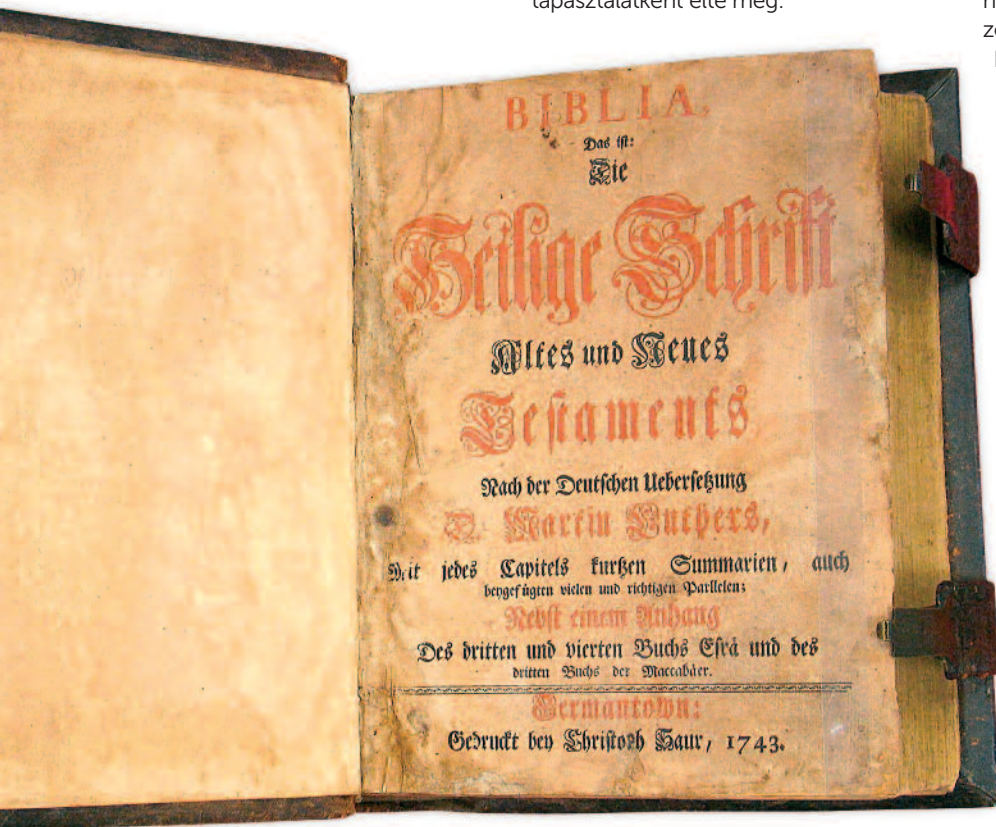 tapasztalatként élte meg.
BIBLIA,
Das ist:
Die
Heilige Schrift
Altes und Neues
Testaments
Nach der Deutschen Uebersetzung
D. Martin Luthers,
Mit jedes Capitels kurtzen Summarien, auch
beygefügten vielen und richtigen Parllelen;
Nebst einem Anhang
Des dritten und vierten Buchs Esrä und des
dritten Buchs der Maccabäer.
Germantown:
Gedruckt bey Christoph Saur, 1743.